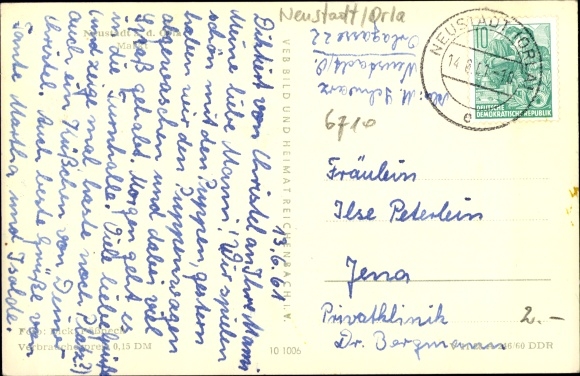 Neustadt/Orla
Diktiert von Christel an Ihre Mami
13.6.61
Meine liebe Mami! Wir spielen
schön mit den Puppen, gestern
haben wir den Puppenwagen
abgewaschen und dabei viel
Spaß gehabt. Morgen geht es
in die Turnhalle. Viele liebe Grüße
und zeige mal, haste noch Platz?)
auch ein Küßchen von Deiner
Christel. Auch beste Grüße von
Tante Martha und Isolde.
Neustadt a. d. Orla
Markt
VEB BILD UND HEIMAT REICHENBACH I. V.
Verbraucherpreis 0,15 DM
10 1006
Abs.: M. Schwarz
Neustadt/O.
Orlagasse 22
6710
NEUSTADT (ORLA)
14.6.61
c
10
DEUTSCHE
DEMOKRATISCHE REPUBLIK
Fräulein
Ilse Peterlein
Jena
Privatklinik
Dr. Bergmann
2.-
60 DDR